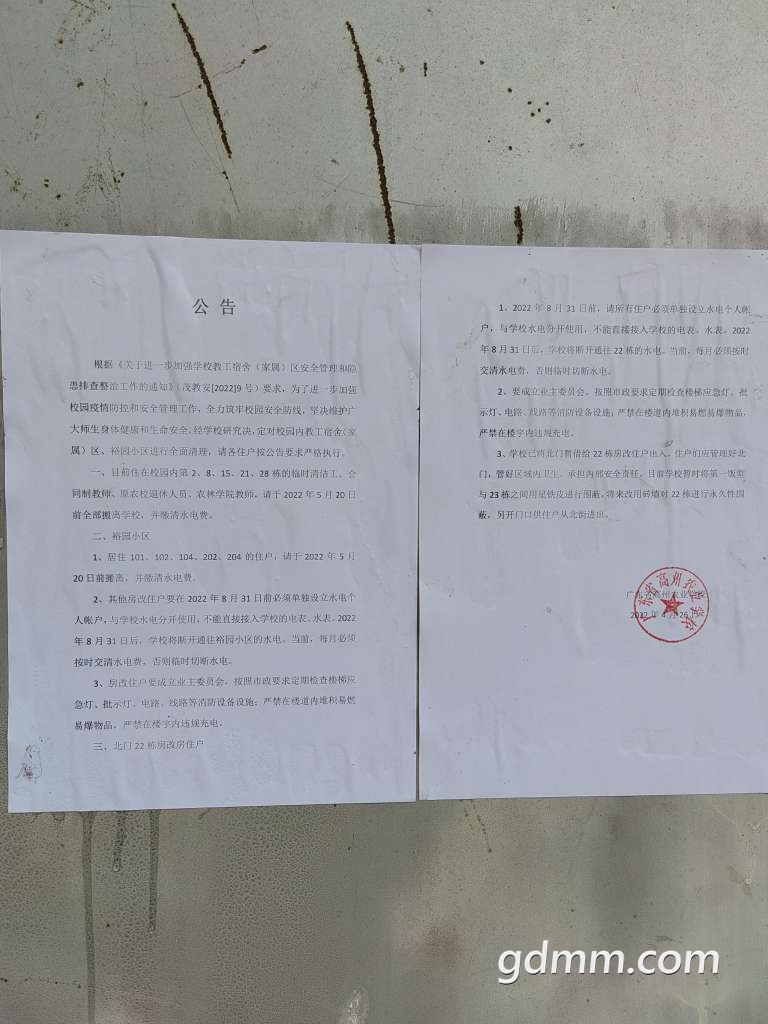 公 告
根据《关于进一步加强学校教工宿舍（家属）区安全管理和隐
患排查整治工作的通知》（茂教安[2022]9号）要求，为了进一步加强
校园疫情防控和安全管理工作，全力筑牢校园安全防线，坚决维护广
大师生身体健康和生命安全，经学校研究决，定对校园内教工宿舍（家
属）区、裕园小区进行全面清理，请各住户按公告要求严格执行。
一、目前住在校园内第2、8、15、21、28栋的临时清洁工、合
同制教师、原农校退休人员、农林学院教师，请于2022年5月20日
前全部搬离学校，并缴清水电费。
二、裕园小区
1、居住101、102、104、202、204的住户，请于2022年5月
20日前搬离，并缴清水电费。
2、其他房改住户要在2022年8月31日前必须单独设立水电个
人帐户，与学校水电分开使用，不能直接接入学校的电表、水表。2022
年8月31日后，学校将断开通往裕园小区的水电。当前，每月必须
按时交清水电费，否则临时切断水电。
3、房改住户要成立业主委员会，按照市政要求定期检查楼梯应
急灯、批示灯、电路、线路等消防设备设施；严禁在楼道内堆积易燃
易爆物品，严禁在楼宇内违规充电。
三、北门22栋房改房住户
1、2022年8月31日前，请所有住户必须单独设立水电个人帐
户，与学校水电分开使用，不能直接接入学校的电表、水表。2022
年8月31日后，学校将断开通往22栋的水电。当前，每月必须按时
交清水电费，否则临时切断水电。
2、要成立业主委员会，按照市政要求定期检查楼梯应急灯、批
示灯、电路、线路等消防设备设施；严禁在楼道内堆积易燃易爆物品，
严禁在楼宇内违规充电。
3、学校已将北门暂借给22栋房改住户出入，住户们应管理好北
门，管好区域内卫生，承担内部安全责任。目前学校暂时将第一饭堂
与23栋之间用星铁皮进行围蔽，将来改用砖墙对22栋进行永久性围
蔽，另开门口供住户从北街进出。
广东省高州农业学校
2022年4月26日
gdmm.com